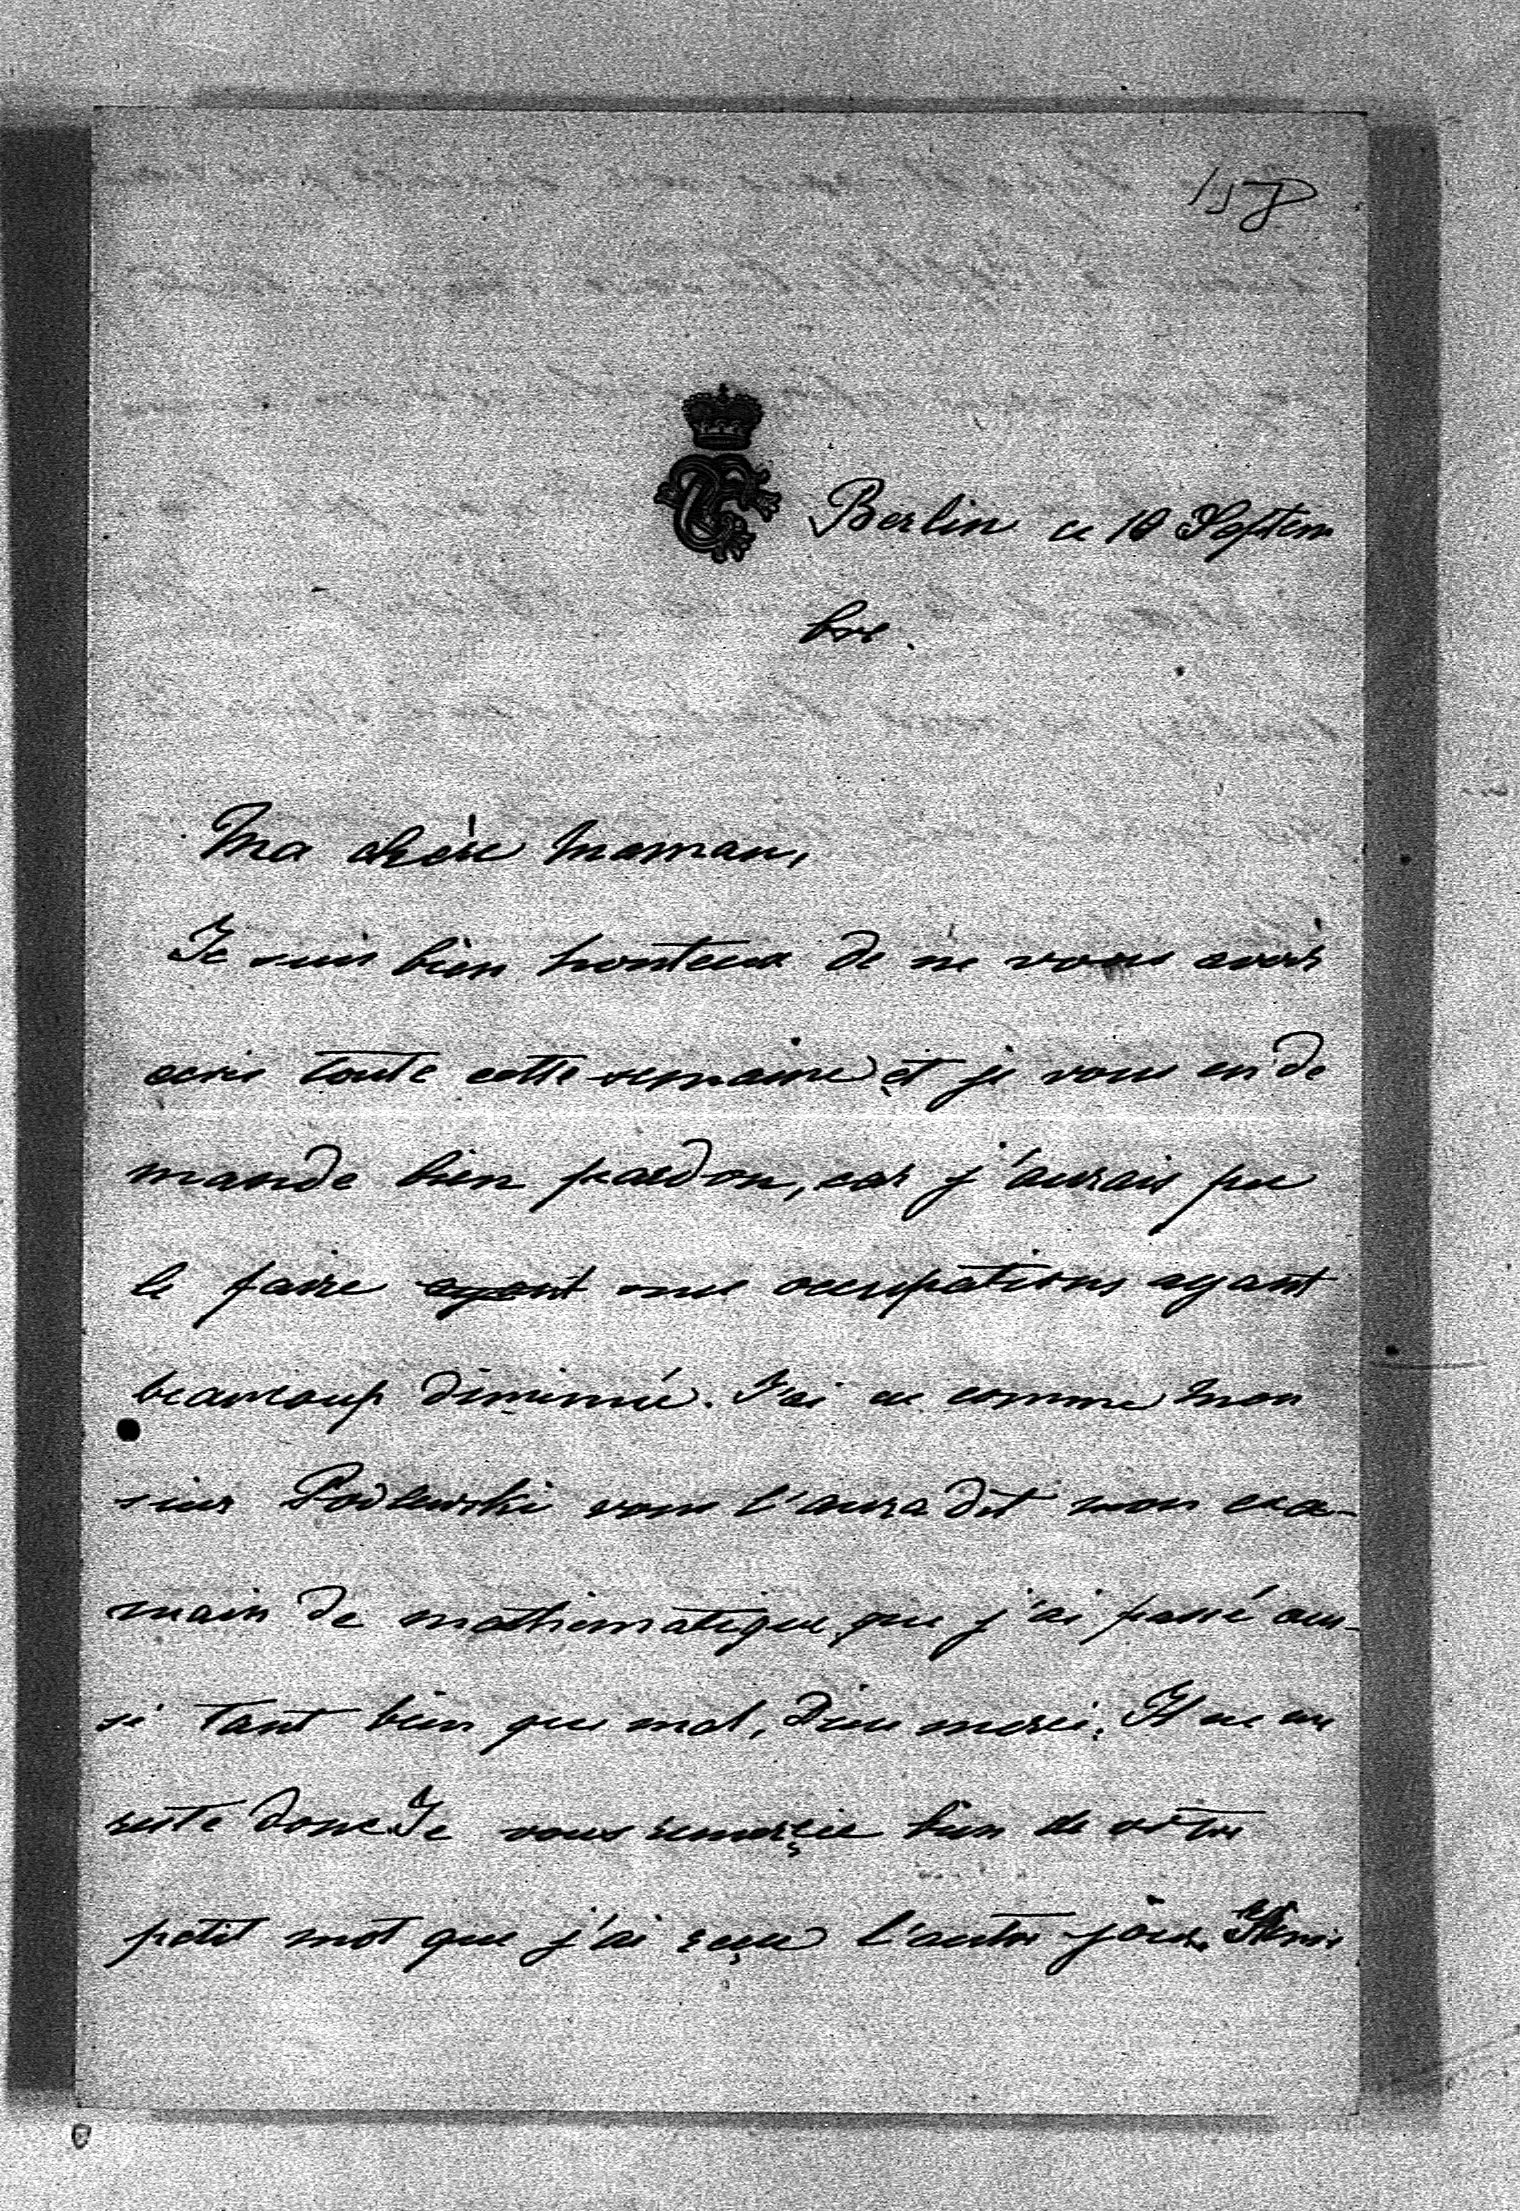 158
Berlin ce 10 Septem
bre.
Ma chère Maman,
Je suis bien honteux de ne vous avoir
ecris toute cette semaine et je vous en de
mande bien pardon, car j'aurais pu
le faire ayant mes occupations ayant
beaucoup diminué. J'ai eu comme Mon
sieur Podlewski vous l'aura dit mon exa-
main de mathematique, que j'ai passé aus-
si tant bien que mal, Dieu merci. Il ne me
reste donc. Je vous remerçie bien de votre
petit mot que j'ai reçu l'autre jour.